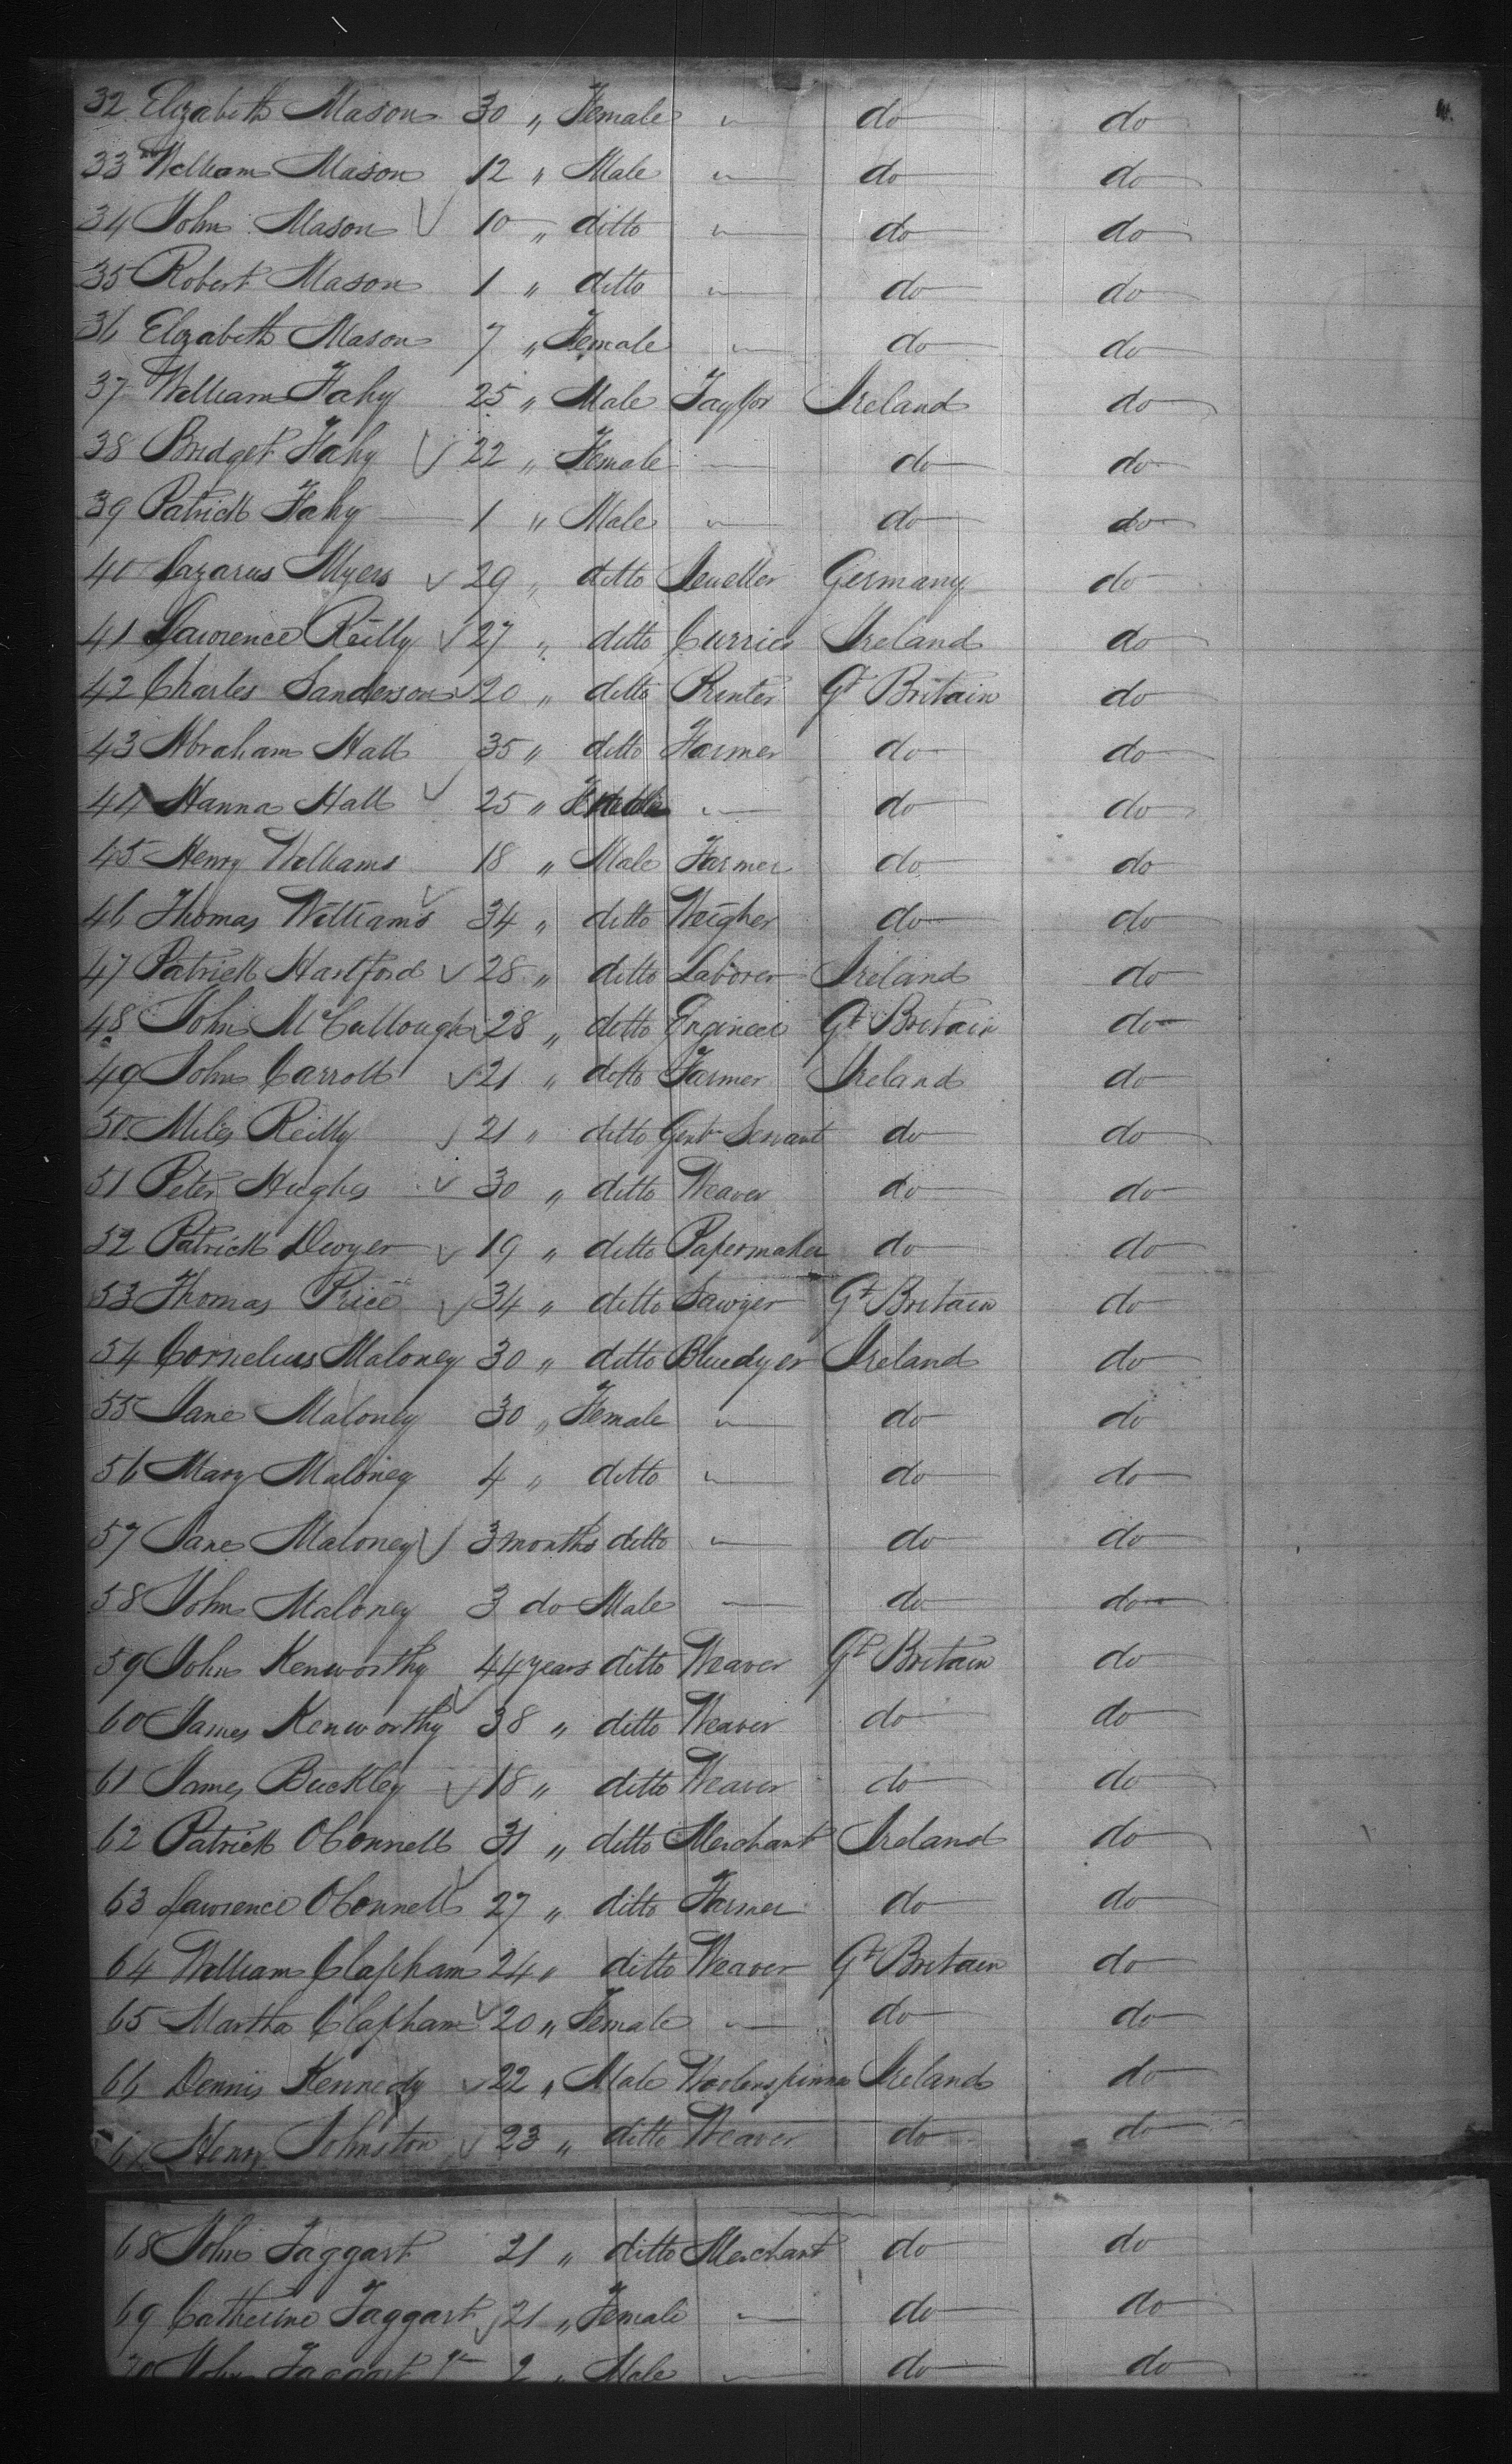 32 Elizabeth Mason 30 " Female " do do
33 William Mason 12 " Male " do do
34 John Mason 10 " ditto " do do
35 Robert Mason 1 " ditto " do do
36 Elizabeth Mason 7 " Female " do do
37 William Fahy 25 " Male Taylor Ireland do
38 Bridget Fahy 22 " Female — do do
39 Patrick Fahy 1 " Male " do do
40 Lazarus Myers 29 " ditto Jeweller Germany do
41 Lawrence Reilly 27 " ditto Currier Ireland do
42 Charles Sanderson 20 " ditto Printer Gt Britain do
43 Abraham Hall 35 " ditto Farmer do do
44 Hanna Hall 25 " Female " do do
45 Henry Williams 18 " Male Farmer do do
46 Thomas Williams 34 " ditto Weigher do do
47 Patrick Hartford 28 " ditto Laborer Ireland do
48 John McCullough 28 " ditto Engineer Gt Britain do
49 John Carroll 21 " ditto Farmer Ireland do
50 Miles Reilly 21 " ditto Gent Servant do do
51 Peter Hughes 30 " ditto Weaver do do
52 Patrick Dwyer 19 " ditto Papermaker do do
53 Thomas Price 34 " ditto Sawyer Gt Britain do
54 Cornelius Maloney 30 " ditto Bluedyer Ireland do
55 Jane Maloney 30 " Female " do do
56 Mary Maloney 4 " ditto " do do
57 Jane Maloney 3 months ditto " do do
58 John Maloney 3 do Male — do do
59 John Kenworthy 44 years ditto Weaver Gt Britain do
60 James Kenworthy 38 " ditto Weaver do do
61 James Buckley 18 " ditto Weaver do do
62 Patrick OConnell 31 " ditto Merchant Ireland do
63 Lawrence OConnell 27 " ditto Farmer do do
64 William Clapham 24 " ditto Weaver Gt Britain do
65 Martha Clapham 20 " Female " do do
66 Dennis Kennedy 22 " Male Woolenspinner Ireland do
67 Henry Johnston 23 " ditto Weaver do do
68 John Taggart 21 " ditto Merchant do do
69 Catherine Taggart 21 " Female " do do
70 John Taggart Jr 2 " Male " do do